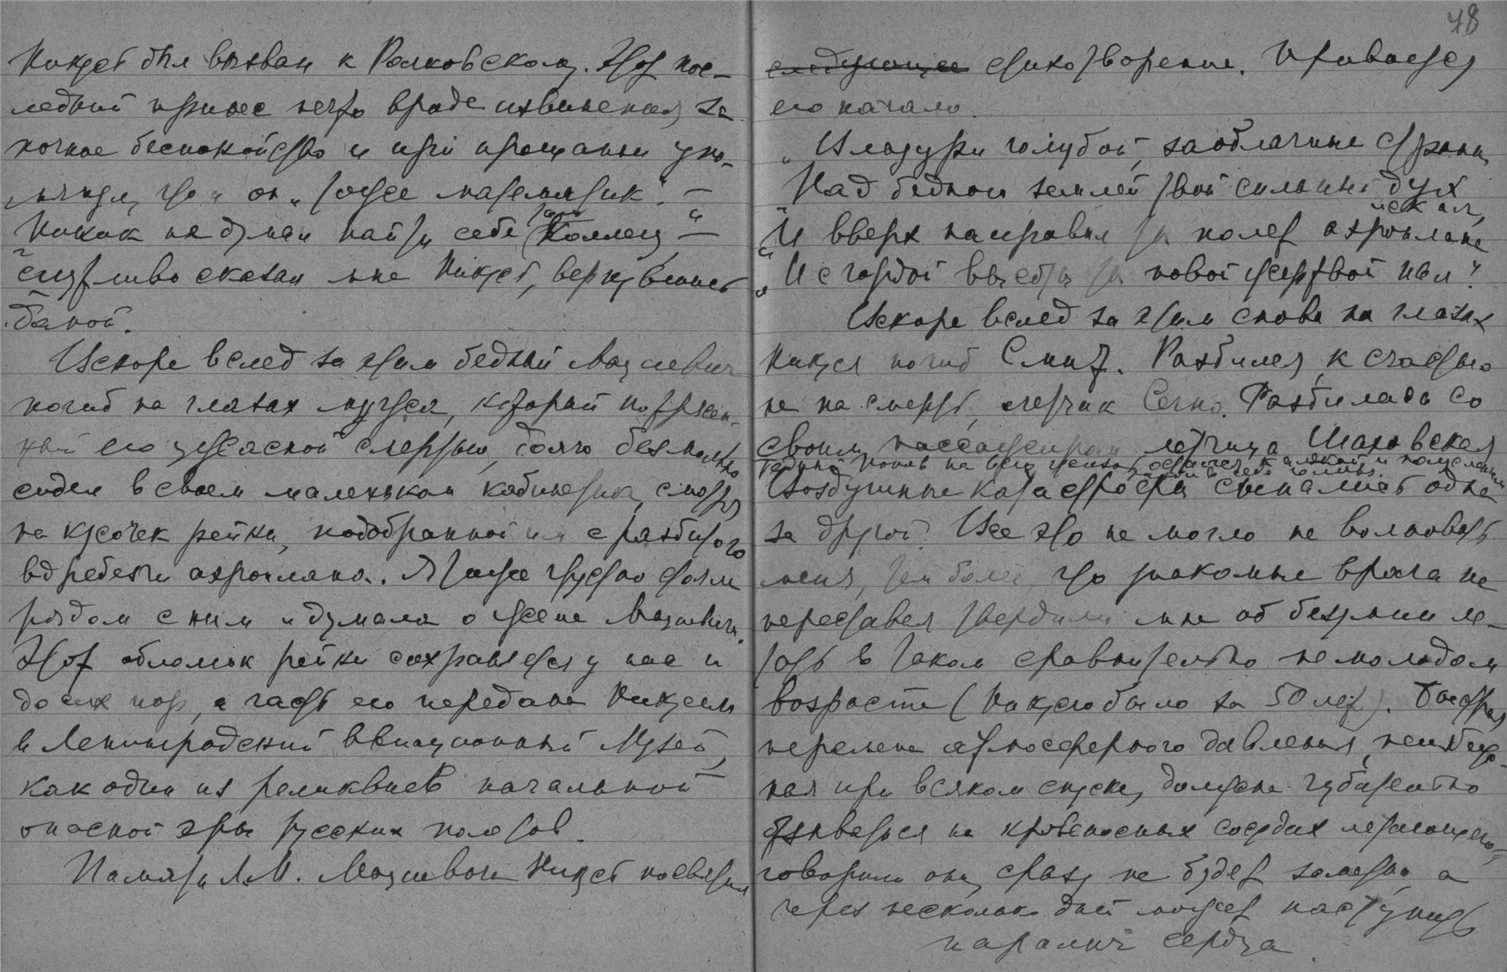 Никусь был вызван к Рачковскому. Этот пос-
ледний принес нечто вроде извинения за
ночное беспокойство и при прощании упо-
мянул, что и он „тоже математик". —
Никак не думал найти себе там „коллегу" —
шутливо сказал мне Никусь, вернувшись
домой.
Вскоре вслед за этим бедный Мациевич
погиб на глазах Никуся, который потрясен-
ный его ужасной смертью, долго безмолвно
сидел в своем маленьком кабинетике, смотря
на кусочек рейки, подобранной им с разбитого
вдребезги аэроплана. Я тоже грустно стояла
рядом с ним и думала о жене Мациевича.
Этот обломок рейки сохраняется у нас и
до сих пор, а часть его передана Никусем
в Ленинградский Авиационный Музей,
как один из реликвиев начальной
опасной эры русских полетов.
Памяти Л.М. Мациевича Никусь посвятил
48
следующее стихотворение. Привожу
его начало.
„В лазури голубой, заоблачные страны
„Над бедною землей твой сильный дух
искал,
„И вверх направил ты полет аэроплана
„И с гордой высоты ты новой жертвой пал".
Вскоре вслед за этим снова на глазах
Никуся погиб Смит. Разбился, к счастью
не на смерть, летчик Сегно. Разбилась со
своим пассажиром летчица Шаховская
Воздушные катастрофы сыпались одна
за другой. Все это не могло не волновать
меня, тем более, что знакомые врача не
переставая твердили мне об безумии ле-
тать в таком сравнительно немолодом
возрасте (Никусю было за 50 лет). Быстрая
перемена атмосферного давления, неизбеж-
ная при всяком спуске, должна губительно
отзываться на кровеносных сосудах летающего,
говорили они, сразу не будет заметно, а
через несколько дней может наступить
паралич сердца.